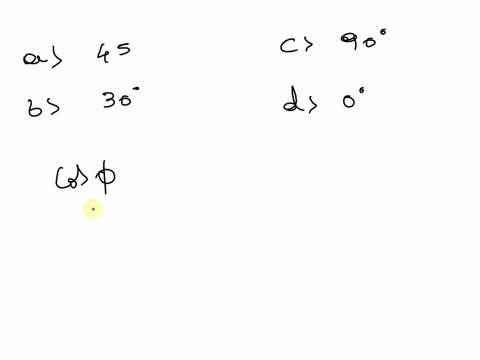 a> 45
b> 30°
c> 90°
d> 0°
cos ϕ